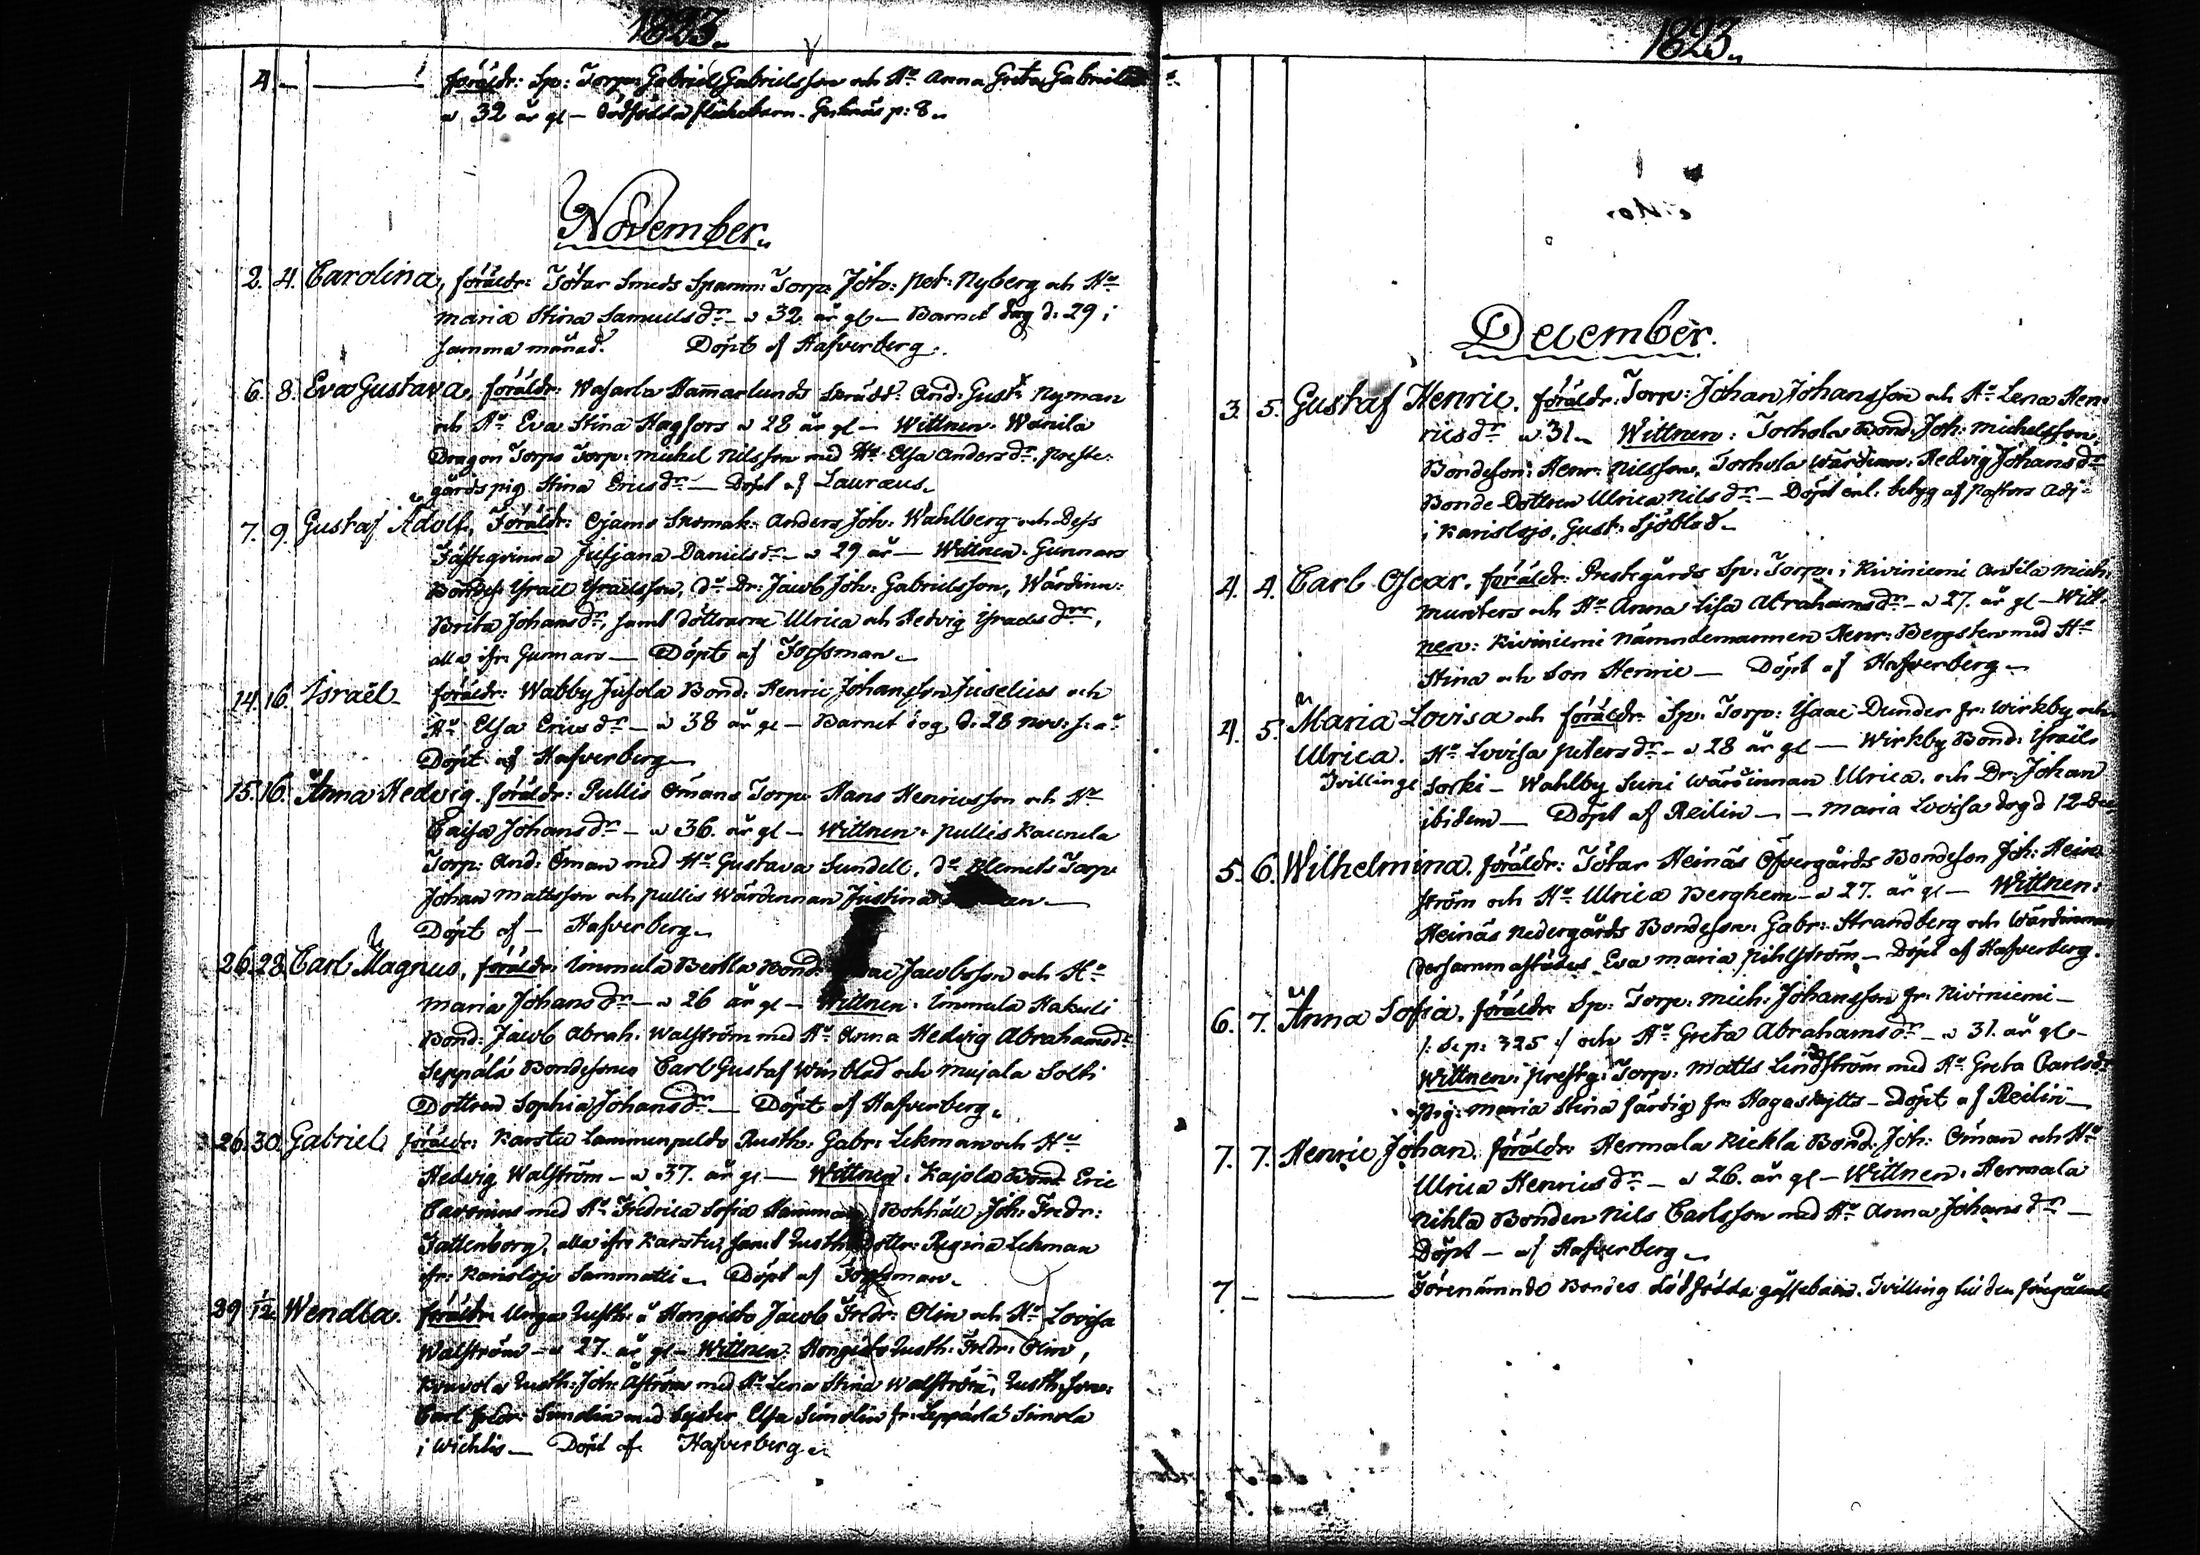 1823.
4 föräldr: Sp: Torp: Gabriel Gabrielsson och Hu Anna Greta
a 32 år gl dödfödda flickebarn. p: 8.
November.
2. 4. Carolina, föräldr: Tötar Smeds Torp: Joh: Pet: Nyberg och Hu
Maria Stina Samuelsdr a 32 år gl Barnet dog d: 29 i
samma månad. Döpt af Hafverberg.
6. 8. Eva Gustava, föräldr: Wasarla Hammarlunds And: Gust: Nyman
och Hu Eva Stina Hagfors a 28 år gl Wittnen: Wanila
Dragon Torps Torp: Michel Nilsson med Hu Elsa Andersdr, preste-
gårds pig. Stina Ericsdr Döpt af Lauræus.
7. 9. Gustaf Adolf, Föräldr: Ojamo Skomak: Anders Joh: Wahlberg och Dess
Fästeqvinna Anders Danielsdr a 29 år Wittnen: Gunnars
Bondes: Israel Israelsson, do Dr: Jacob Joh: Gabrielsson, Wärdinn:
Brita Johansdr, samt döttrarne Ulrica och Hedvig Israelsdrr,
alla ifr: Gunnars Döpt af Forssman.
14. 16. Israël föräldr: Wabby Jusola Bond: Henric Johansson Juselius och
Hu Elsa Ericsdr a 38 år gl Barnet dog d: 28 nov: s: a:
Döpt af Hafverberg
15. 16. Anna Hedvig. föräldr: Pullis Ömans Torp: Hans Henricsson och Hu
Caisa Johansdr a 36. år gl Wittnen: Pullis
Torp: And: Öman med Hu Gustava Sundell, do Klemets Torp:
Johan Mattsson och Pullis Wärdinnan Justina
Döpt af Hafverberg.
26. 28. Carl Magnus, föräldr: Immula Bertla Bond: Jacobsson och Hu
Maria Johansdr a 26 år gl Wittnen: Immula Hakuli
Bond: Jacob Abrah: Walström med Hu Anna Hedvig Abrahamsdr
Seppälä Bondesonen Carl Gustaf Winblad och Maijala Solti
Dottren Sophia Johansdr Döpt af Hafverberg.
26. 30. Gabriel föräldr: Karstu Lammenpeldo Rusth: Gabr: Lekman och Hu
Hedvig Walström a 37. år gl Wittnen: Kajola Bond: Eric
med Hu Fredrica Sofia Bokhåll: Joh: Fredr:
alla ifr: Karstu, samt Rusth: dottr: Regina Lekman
ifr: Karislojo Sammatti. Döpt af Forssman.
29 1/12 Wendla. föräldr: Unga Rusth: å Hongisto Jacob Fredr: Olin och Hu Lovisa
Walström a 27. år gl Wittnen: Hongisto Rusth: Fredr: Olin,
Rusth: Joh: Åström med Hu Lena Stina Walström, Rusth: son:
Carl Fredr: Simolin med Syster Elsa Simolin fr: Leppärlä Simola
i Wichtis Döpt af Hafverberg.
1823.
December.
3. 5. Gustaf Henric. föräldr: Torp: Johan Johansson och Hu Lena Hen-
ricsdr a 31. Wittnen: Torhola Bond: Joh: Michelsson,
Bondeson: Henr: Nilsson, Torhola Wärdinn: Hedvig Johansdr
Bonde Dottren Ulrica Nilsdr Döpt enl: betyg af Pastors Adj:
i Karislojo, Gust: Sjöblad.
4. 4. Carl Oscar. föräldr: Prestgårds Sp: Torp: i Kiviniemi Antila Mich:
Munters och Hu Anna Lisa Abrahamsdr a 27. år gl Witt-
nen: Kiviniemi Nämndemannen Henr: Bergsten med Hu
Stina och Son Henric Döpt af Hafverberg
4. 5. Maria Lovisa och föräldr: Sp: Torp: Isaac Dunder fr: Wirkby och
Ulrica. Hu Lovisa Petersdr a 28 år gl Wirkby Bond: Israel
Tvillingr Sorki Wahlby Suni Wärdinnan Ulrica. och Dr: Johan
ibidem Döpt af Reilin Maria Lovisa dog d 12 Dec
5. 6. Wilhelmina. föräldr: Tötar Heinäs Öfvergårds Bondeson Joh: Hein-
ström och Hu Ulrica Berghem a 27. år gl Wittnen:
Heinäs Nedergårds Bondeson: Gabr: Strandberg och Wärdinnan
dersammastädes Eva Maria Pihlström Döpt af Hafverberg.
6. 7. Anna Sofia. föräldr: Sp: Torp: Mich: Johansson fr: Kiviniemi
/: Se p: 325 :/ och Hu Greta Abrahamsdr a 31. år gl
Wittnen: Prestg: Torp: Matts Lindström med Hu Greta Carlsdr
Pig: Maria Stina Färdig fr: Döpt af Reilin
7. 7. Henric Johan. föräldr: Hermala Bond: Joh: Öman och Hu
Ulrica Henricsdr a 26. år gl Wittnen: Hermala
Nihla Bonden Nils Carlsson med Hu Anna Johansdr
Döpt af Hafverberg
7 Förenämndo Bondes dödfödda gossebarn. Tvilling till den föregående